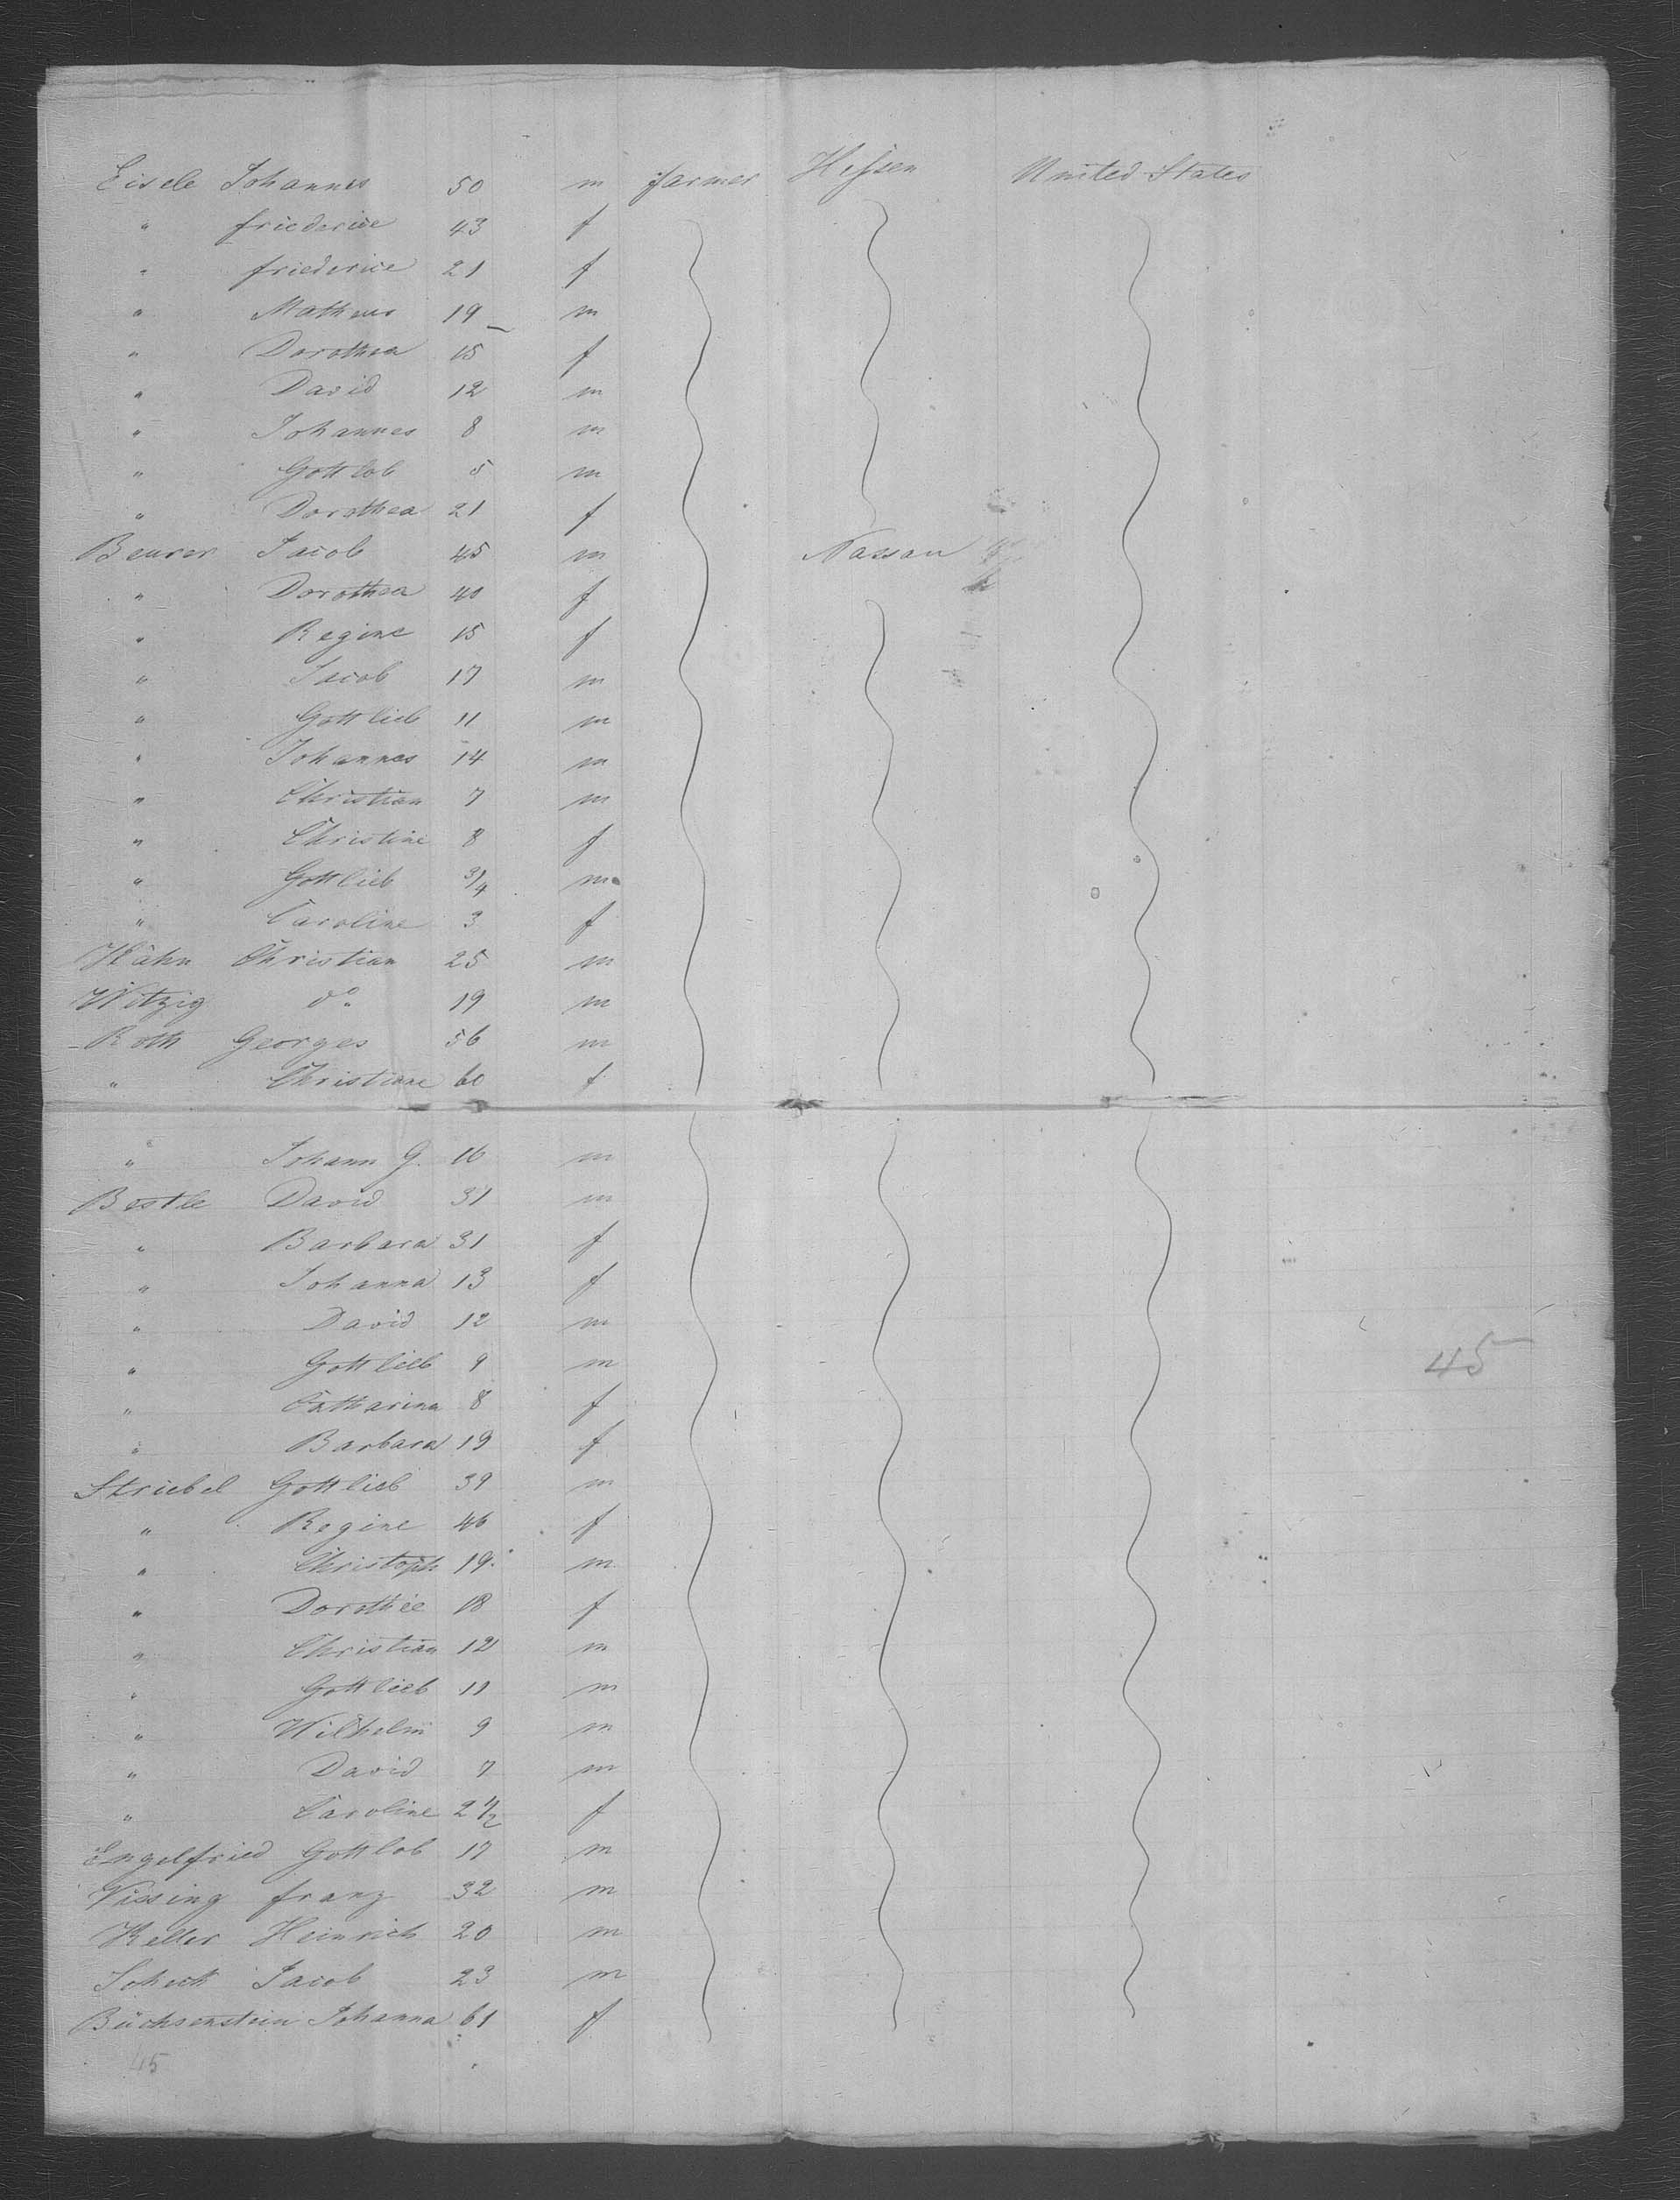 Eisele Johannes 50 m farmer Hessen United States
" friederice 43 f
" friederice 21 f
" Matheus 19 m
" Dorothea 15 f
" David 12 m
" Johannes 8 m
" Gottlob 5 m
" Dorothea 21 f
Beurer Jacob 45 m Nassau
" Dorothea 40 f
" Regine 15 f
" Jacob 17 m
" Gottlieb 11 m
" Johannes 14 m
" Christian 7 m
" Christine 8 f
" Gottlieb 3/4 m
" Caroline 3 f
Hähn Christian 25 m
Witzig do 19 m
Roth Georges 56 m
" Christiane 60 f
" Johann G. 16 m
Bestle David 31 m
" Barbara 31 f
" Johanna 13 f
" David 12 m
" Gottlieb 9 m
45
" Catharina 8 f
" Barbara 19 f
Striebel Gottlieb 39 m
" Regine 46 f
" Christoph 19 m
" Dorothee 18 f
" Christian 12 m
" Gottlieb 11 m
" Wilhelm 9 m
" David 7 m
" Caroline 2 1/2 f
Engelfried Gottlob 17 m
Vissing franz 32 m
Keller Heinrich 20 m
Jacob 23 m
Büchsenstein Johanna 61 f
45